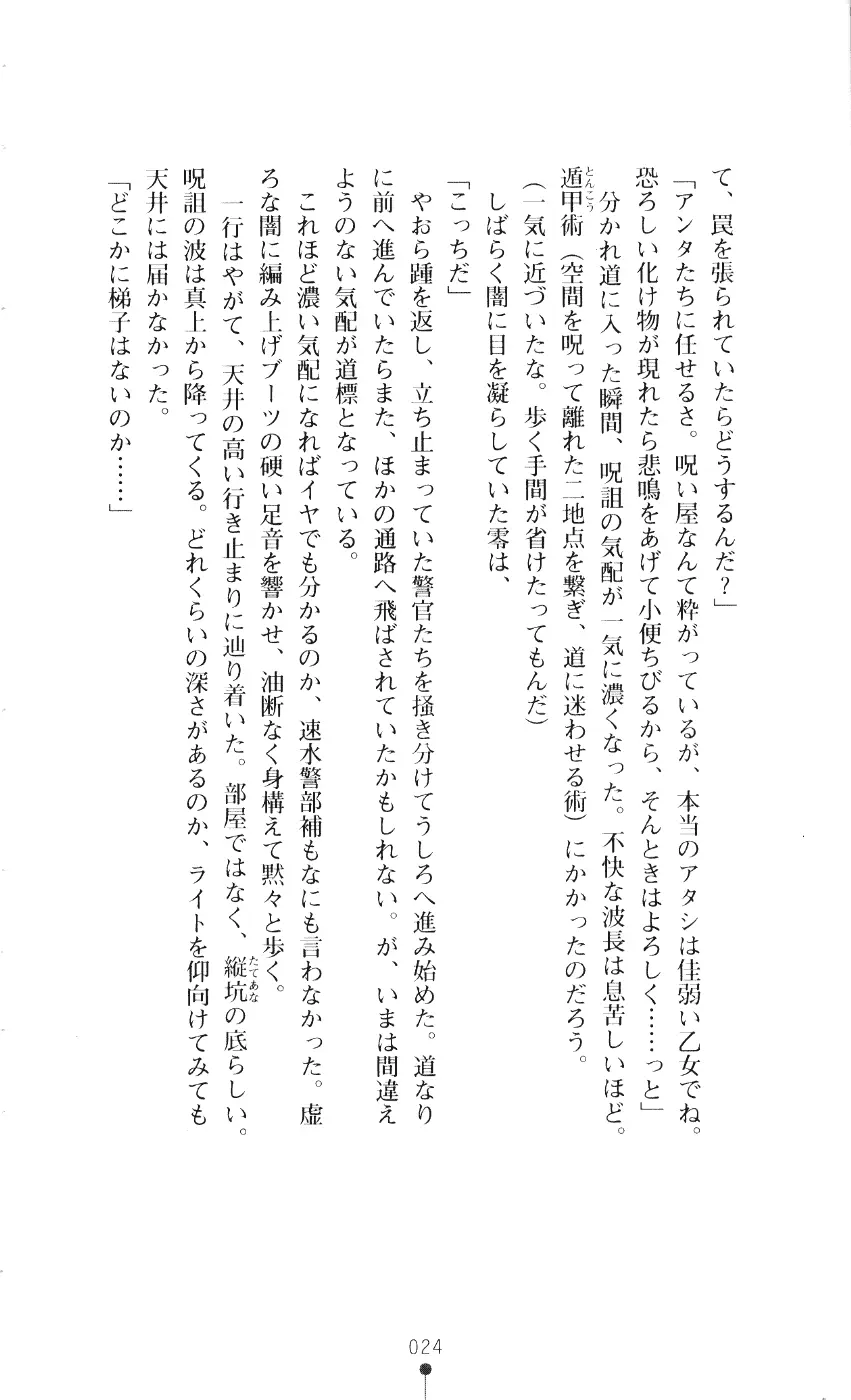 て、罠を張られていたらどうするんだ？」
「アンタたちに任せるさ。呪い屋なんて粋がっているが、本当のアタシは佳弱い乙女でね。
恐ろしい化け物が現れたら悲鳴をあげて小便ちびるから、そんときはよろしく……っと」
　分かれ道に入った瞬間、呪詛の気配が一気に濃くなった。不快な波長は息苦しいほど。
遁甲術（空間を呪って離れた二地点を繋ぎ、道に迷わせる術）にかかったのだろう。
とんこう
（一気に近づいたな。歩く手間が省けたってもんだ）
　しばらく闇に目を凝らしていた零は、
「こっちだ」
　やおら踵を返し、立ち止まっていた警官たちを掻き分けてうしろへ進み始めた。道なり
に前へ進んでいたらまた、ほかの通路へ飛ばされていたかもしれない。が、いまは間違え
ようのない気配が道標となっている。
　これほど濃い気配になればイヤでも分かるのか、速水警部補もなにも言わなかった。虚
ろな闇に編み上げブーツの硬い足音を響かせ、油断なく身構えて黙々と歩く。
　一行はやがて、天井の高い行き止まりに辿り着いた。部屋ではなく、縦坑の底らしい。
たてあな
呪詛の波は真上から降ってくる。どれくらいの深さがあるのか、ライトを仰向けてみても
天井には届かなかった。
「どこかに梯子はないのか……」
024